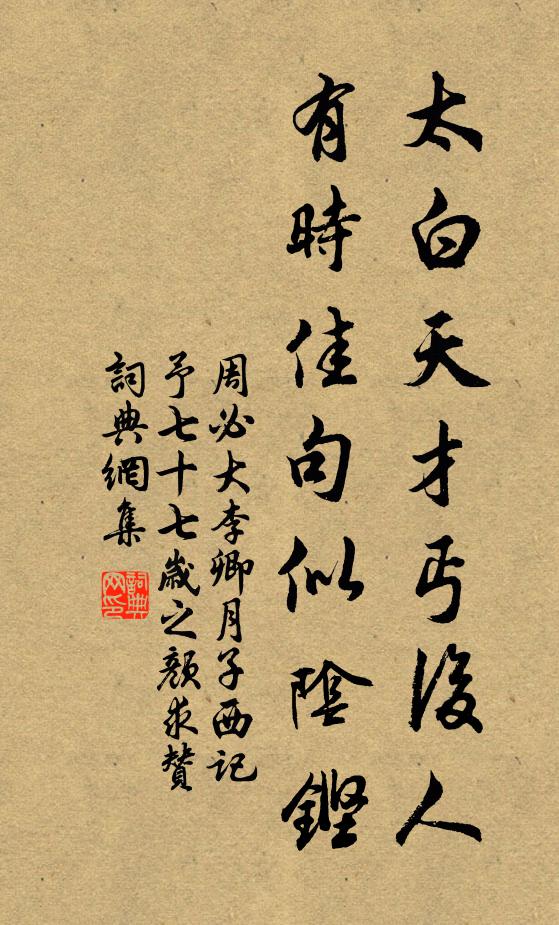 太白天才丐後人
有時佳句似陰鏗
周必大李卿月子西記
予七十七歲之顏求贊
詞典網集
詞典網印